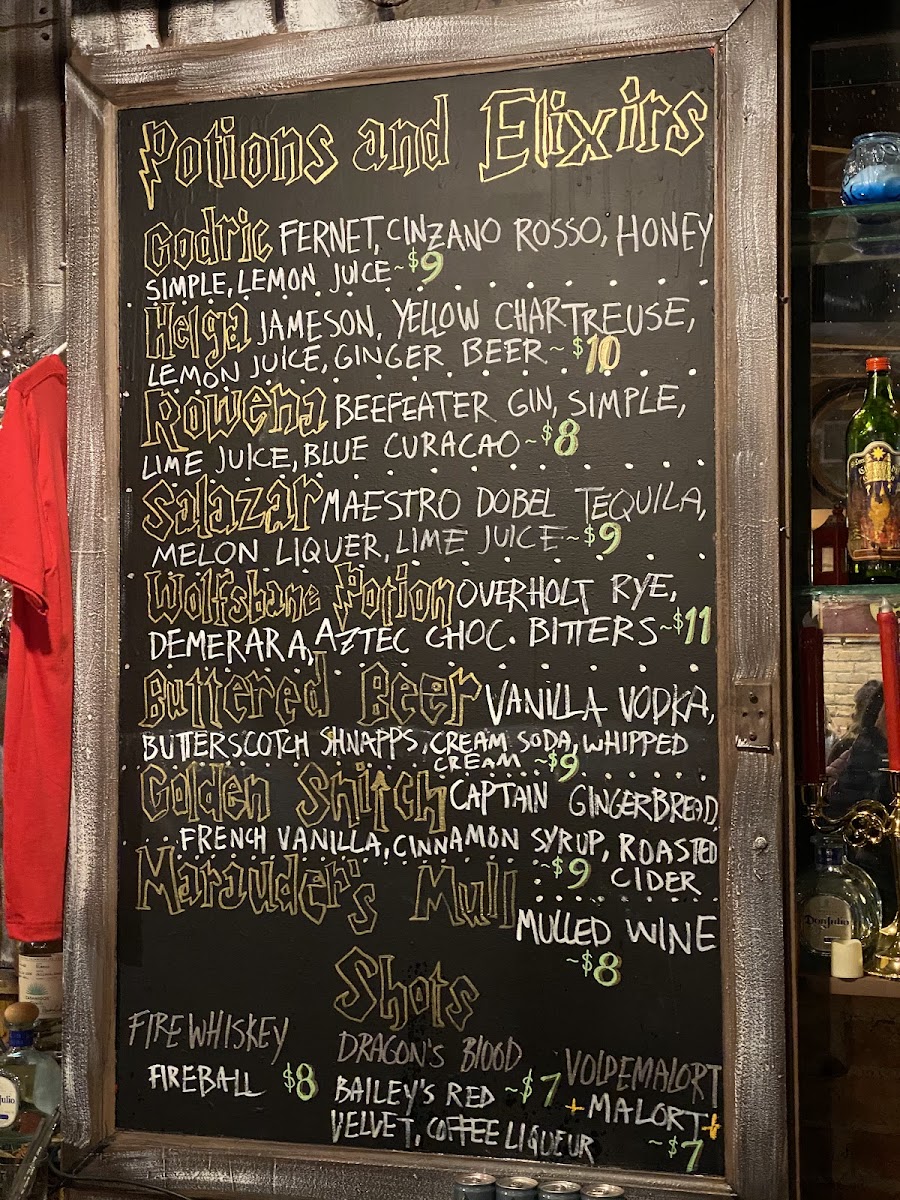 Potions and Elixirs
Godric FERNET, CINZANO ROSSO, HONEY
SIMPLE, LEMON JUICE ~ $9
Helga JAMESON, YELLOW CHARTREUSE,
LEMON JUICE, GINGER BEER ~ $10
Rowena BEEFEATER GIN, SIMPLE,
LIME JUICE, BLUE CURACAO ~ $8
Salazar MAESTRO DOBEL TEQUILA,
MELON LIQUER, LIME JUICE ~ $9
Wolfsbane Potion OVERHOLT RYE,
DEMERARA, AZTEC CHOC. BITTERS ~ $11
Buttered Beer VANILLA VODKA,
BUTTERSCOTCH SHNAPPS, CREAM SODA, WHIPPED
CREAM ~ $9
Golden Snitch CAPTAIN GINGERBREAD,
FRENCH VANILLA, CINNAMON SYRUP, ROASTED
~ $9 CIDER
Marauder's Mull
MULLED WINE
~ $8
Shots
FIREWHISKEY
FIREBALL $8
DRAGON'S BLOOD
BAILEY'S RED ~ $7
VELVET, COFFEE LIQUEUR
VOLDEMALORT
+MALORT+
~ $7
Don Julio